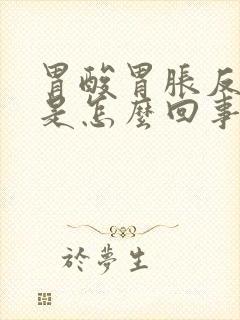 胃酸胃脹反
是怎麼回事
於夢生